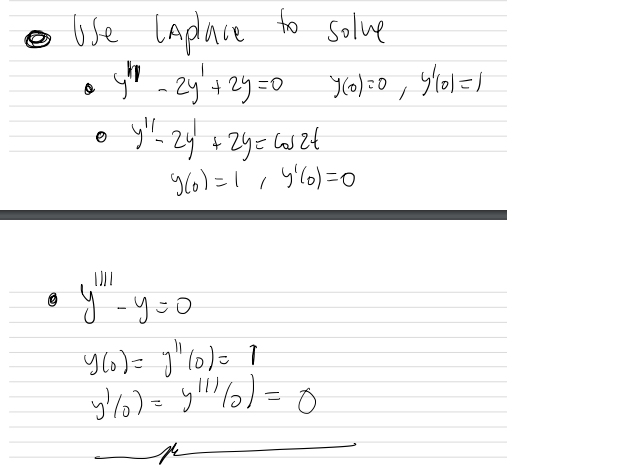 Use Laplace to solve
y'' - 2y' + 2y = 0 y(0) = 0 , y'(0) = 1
y'' - 2y' + 2y = cos 2t
y(0) = 1 , y'(0) = 0
y'''' - y = 0
y(0) = y''(0) = 1
y'(0) = y'''(0) = 0